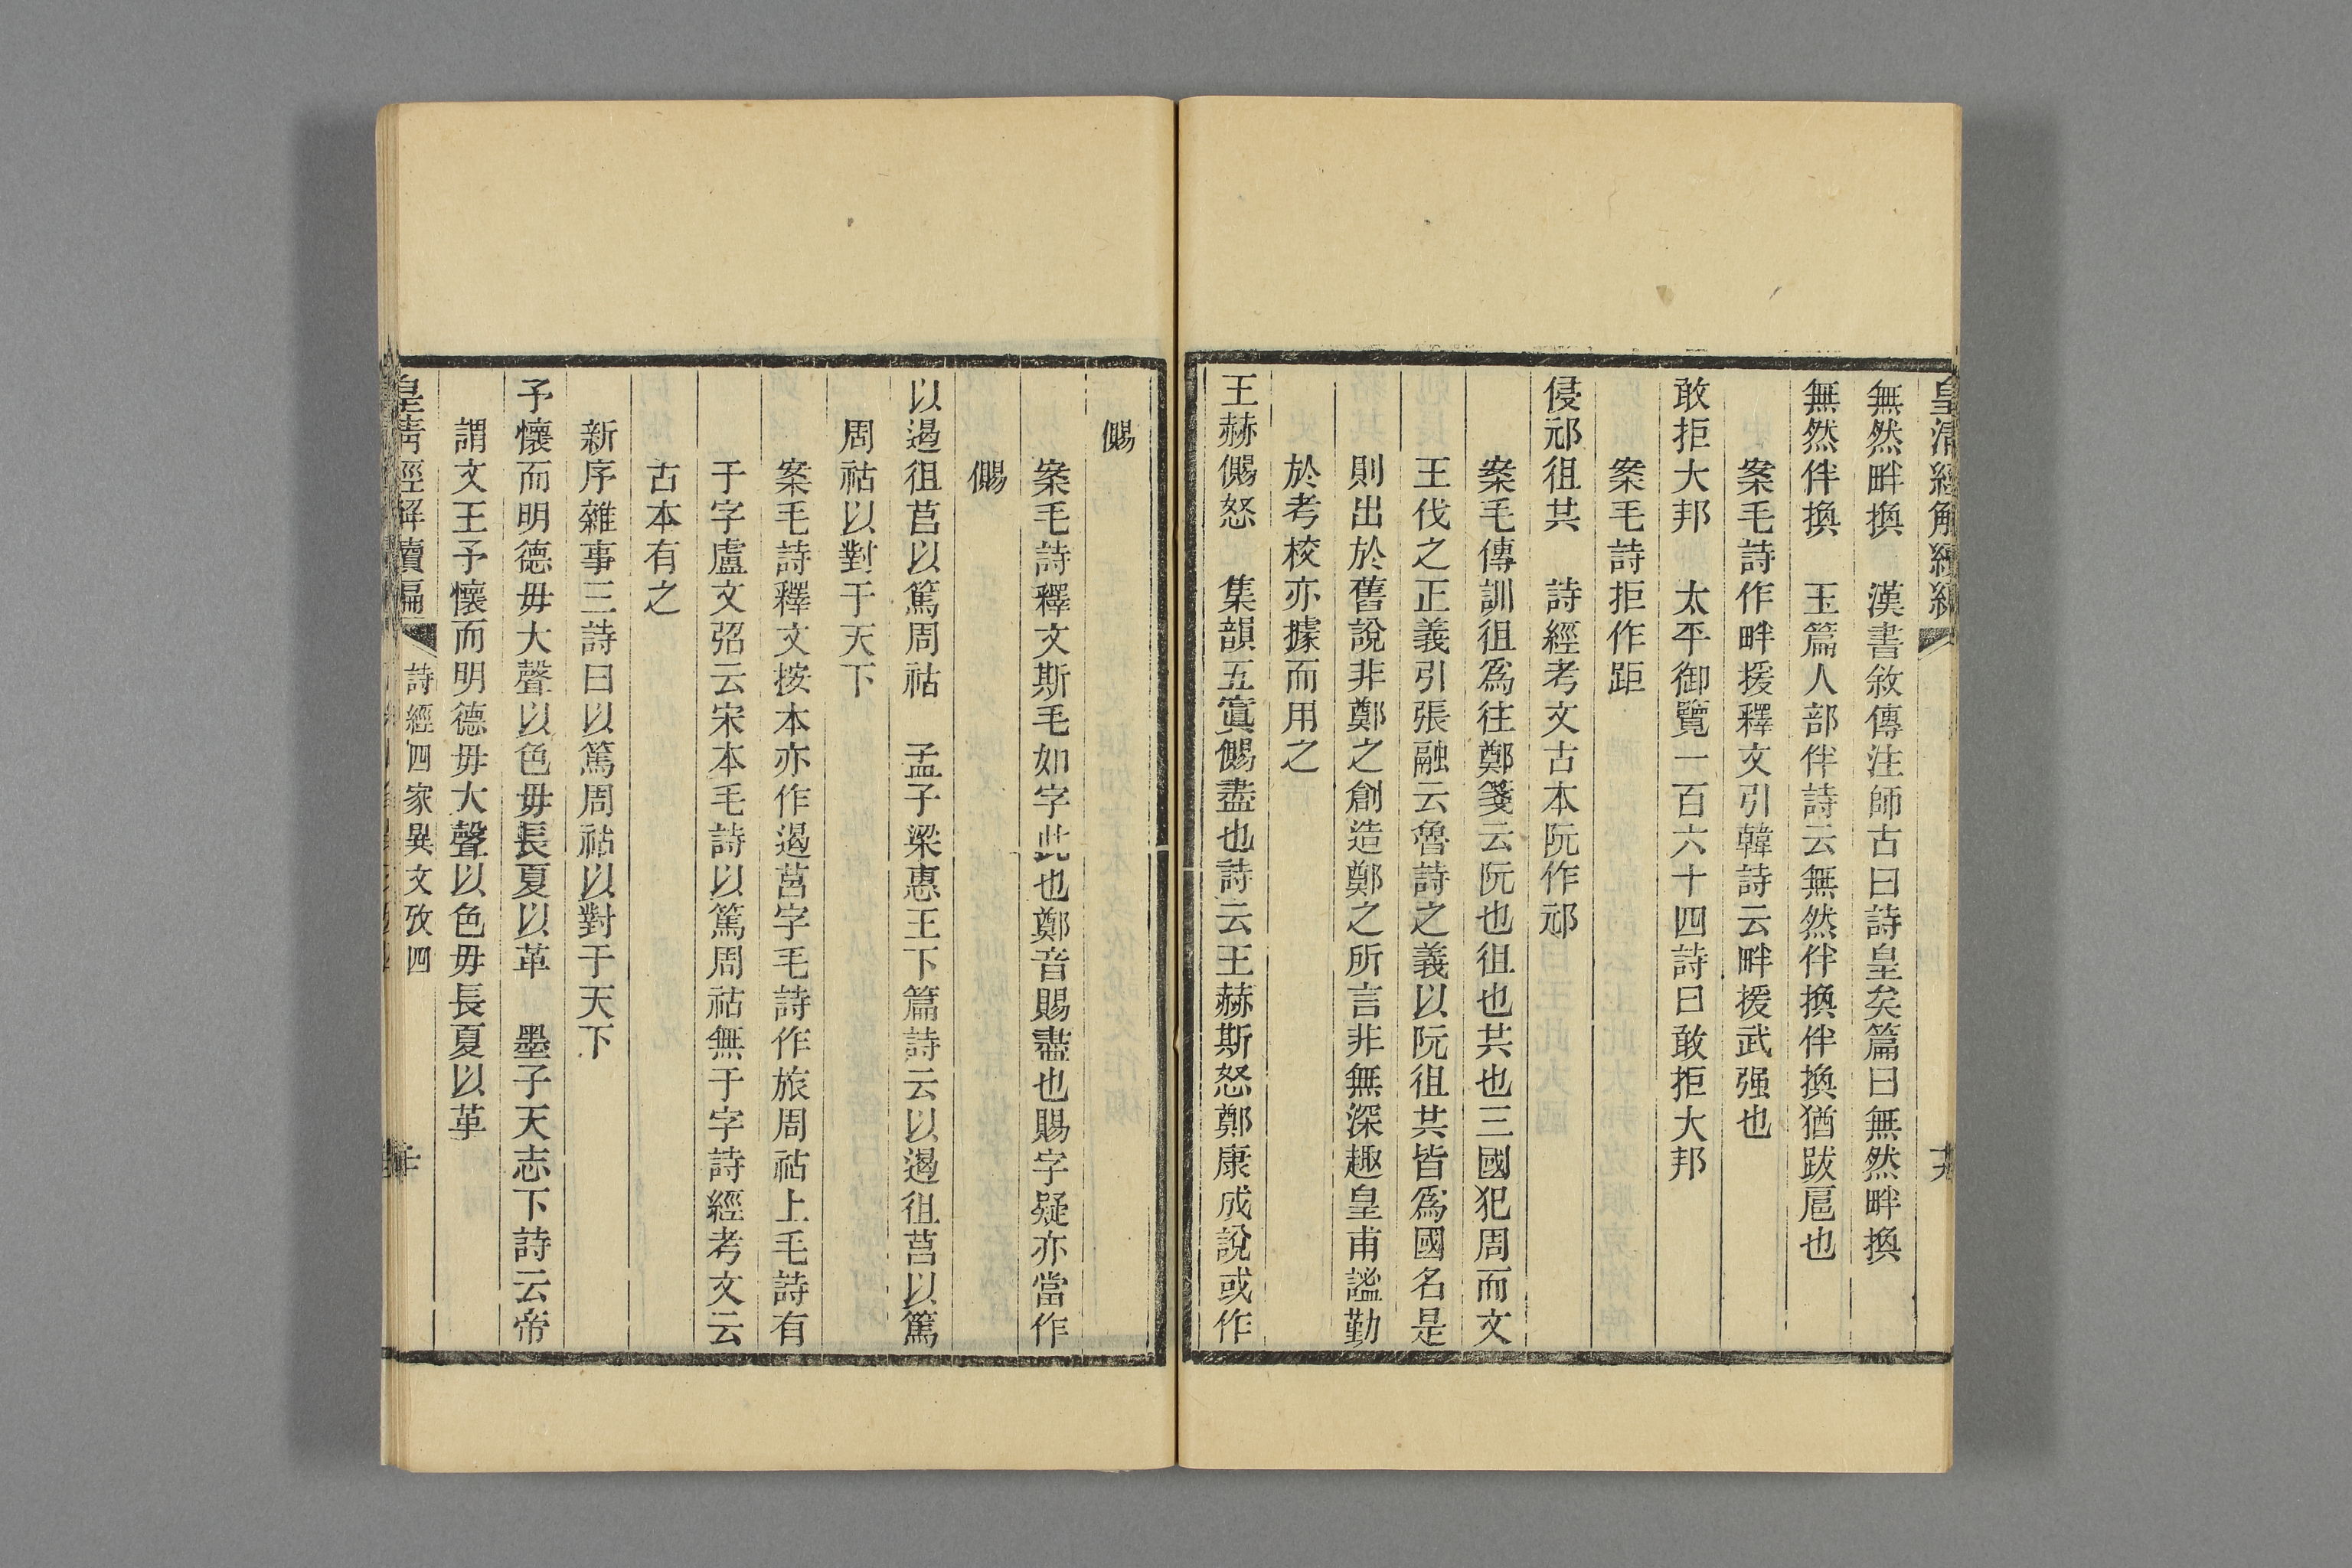 皇清經解續編 十九
無然畔換　漢書敘傳注師古曰詩皇矣篇曰無然畔換
無然伴換　玉篇人部伴詩云無然伴換伴換猶跋扈也
案毛詩作畔援釋文引韓詩云畔援武强也
敢拒大邦　太平御覽一百六十四詩曰敢拒大邦
案毛詩拒作距
侵祁徂共　詩經考文古本阮作祁
案毛傳訓徂爲往鄭箋云阮也徂也共也三國犯周而文
王伐之正義引張融云魯詩之義以阮徂共皆爲國名是
則出於舊說非鄭之創造鄭之所言非無深趣皇甫謐勤
於考校亦據而用之
王赫儩怒　集韻五寘儩盡也詩云王赫斯怒鄭康成說或作
儩
案毛詩釋文斯毛如字此也鄭音賜盡也賜字疑亦當作
儩
以遏徂莒以篤周祜　孟子梁惠王下篇詩云以遏徂莒以篤
周祜以對于天下
案毛詩釋文按本亦作遏莒字毛詩作旅周祜上毛詩有
于字盧文弨云宋本毛詩以篤周祜無于字詩經考文云
古本有之
新序雜事三詩曰以篤周祜以對于天下
予懷而明德毋大聲以色毋長夏以革　墨子天志下詩云帝
謂文王予懷而明德毋大聲以色毋長夏以革
皇清經解續編 詩經四家異文攷四 二十